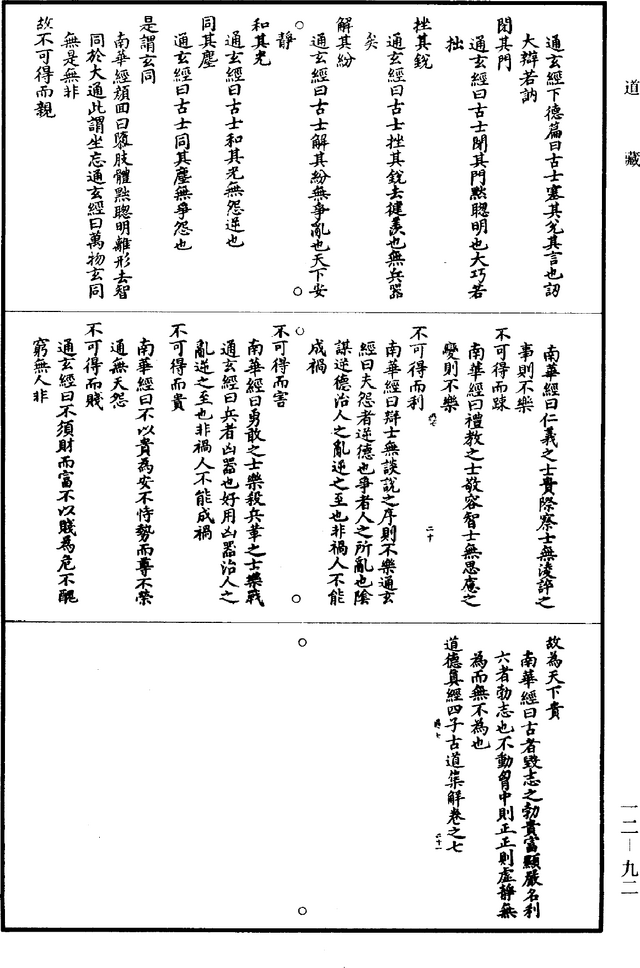 道藏
通玄經下德篇曰古士塞其兌其言也訒
大辯若訥
閉其門
通玄經曰古士閉其門黜聰明也大巧若
拙
挫其銳
通玄經曰古士挫其銳去健羨也無兵器
矣
解其紛
通玄經曰古士解其紛無爭亂也天下安
靜
和其光
通玄經曰古士和其光無怨逆也
同其塵
通玄經曰古士同其塵無爭怨也
是謂玄同
南華經顏回曰墮肢體黜聰明離形去智
同於大通此謂坐忘通玄經曰萬物玄同
無是無非
故不可得而親
南華經曰仁義之士貴際察士無淩誶之
事則不樂
不可得而踈
南華經曰禮教之士敬容智士無思慮之
變則不樂
不可得而利
二十
南華經曰辯士無談說之序則不樂通玄
經曰夫怨者逆德也爭者人之所亂也陰
謀逆德治人之亂逆之至也非禍人不能
成禍
不可得而害
南華經曰勇敢之士樂殺兵革之士樂戰
通玄經曰兵者凶器也好用凶器治人之
亂逆之至也非禍人不能成禍
不可得而貴
南華經曰不以貴為安不恃勢而尊不榮
通無天怨
不可得而賤
通玄經曰不須財而富不以賤為危不醜
窮無人非
故為天下貴
南華經曰古者毀志之勃貴富顯嚴名利
六者勃志也不動胷中則正正則虛靜無
為而無不為也
道德真經四子古道集解卷之七
二十一
一二－九二